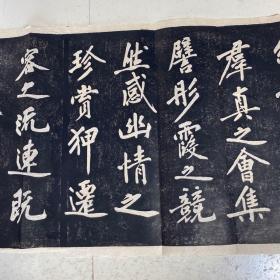 羣真之會集
譬彤霞之競
然感幽情之
珍賞狎遷
客之流連既